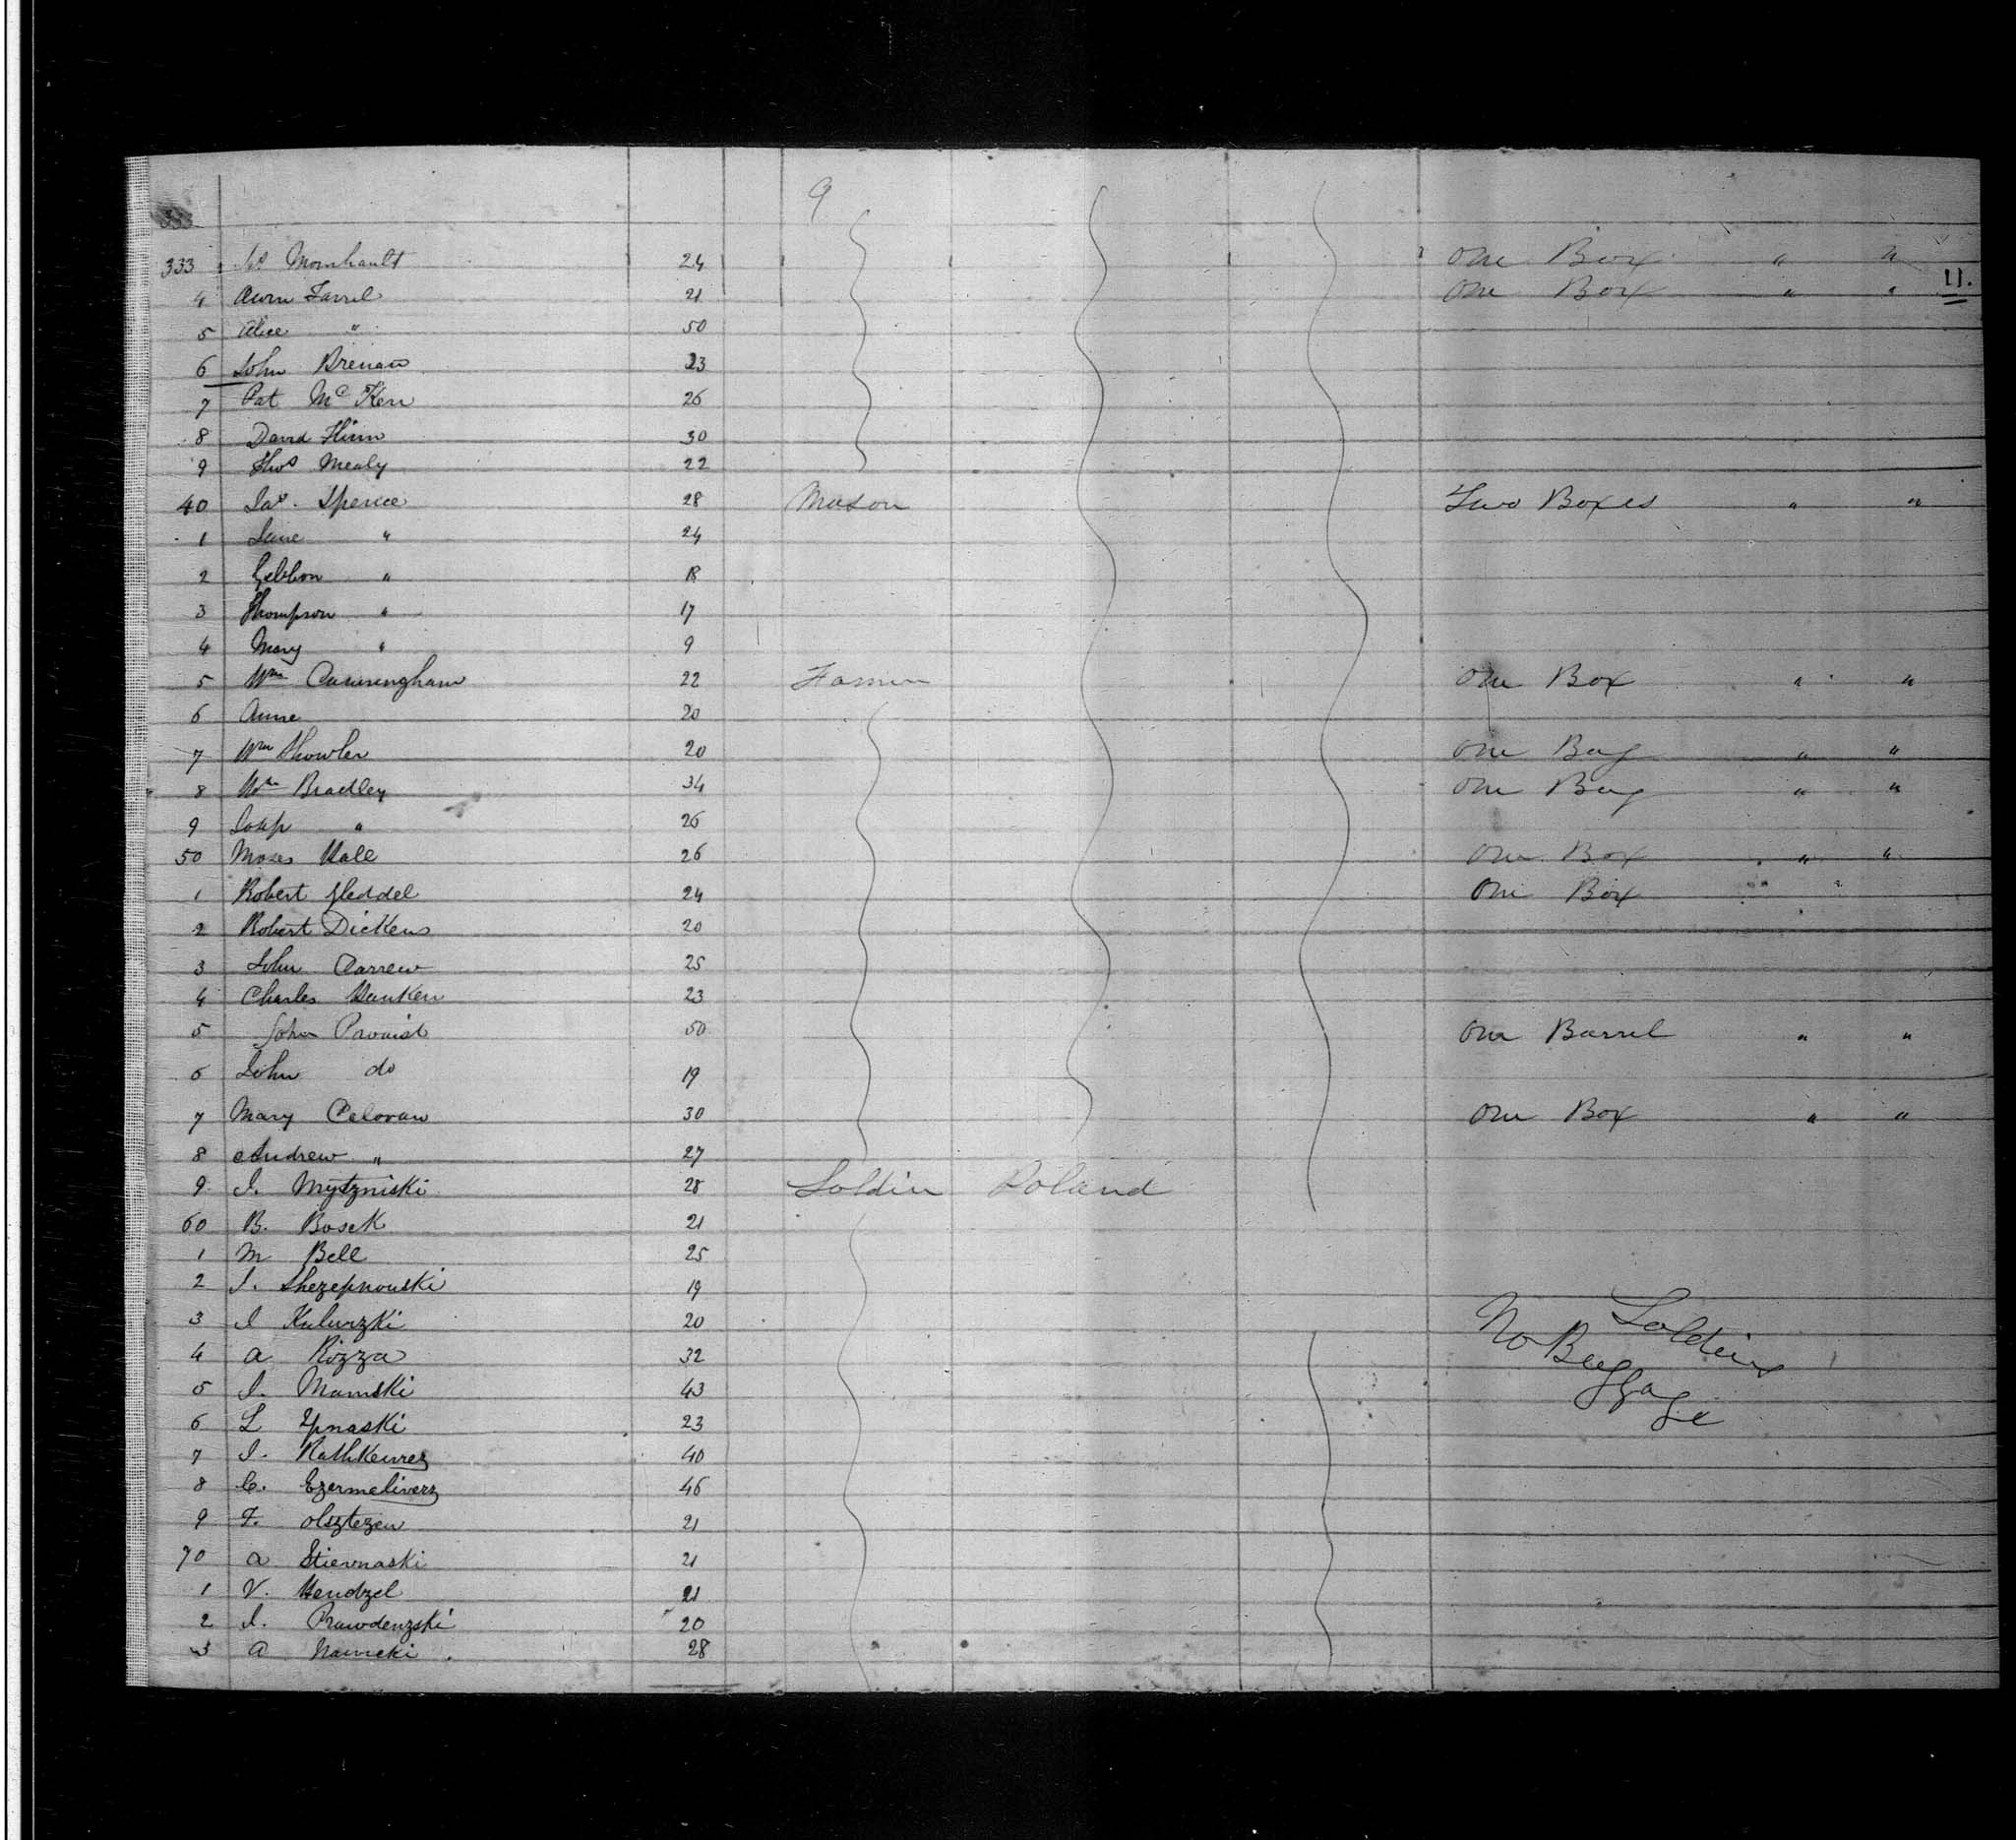 9
333
333 Mornhault 24 One Box " "
11.
4 Farrel 21 One Box " "
5 Alice " 50
6 John Brenan 23
7 Pat McKen 26
8 David Flinn 30
9 Thos Mealy 22
40 Jas. Spence 28 Mason Two Boxes " "
1 Jane " 24
2 Gebbon " 18
3 Thompson " 17
4 Mary " 9
5 Wm Cunningham 22 Farmer One Box " "
6 Anne 20
7 Wm Showler 20 One Bag " "
8 Wm Bradley 34 One Bag " "
9 " 26
50 Moses Hall 26 One Box " "
1 Robert Heddel 24 One Box
2 Robert Dickens 20
3 John Carrew 25
4 Charles Hanken 23
5 John 50 One Barrel " "
6 John do 19
7 Mary Celovan 30 One Box " "
8 Andrew " 27
9 I. Mytzniski 28 Soldier Poland
60 B. Bosek 21
1 M Bell 25
2 I. Shezepnouski 19
3 I Kulurzki 20
Soldiers
No Baggage
4 A Rozza 32
5 I. Mamski 43
6 L Ypnaski 23
7 I. Rathkeurez 40
8 C. Ezermeliverz 46
9 F. Olsztezen 21
70 A Stievnaski 21
1 V. Hendzel 21
2 I. Prawdenzski 20
3 A Nawicki 28